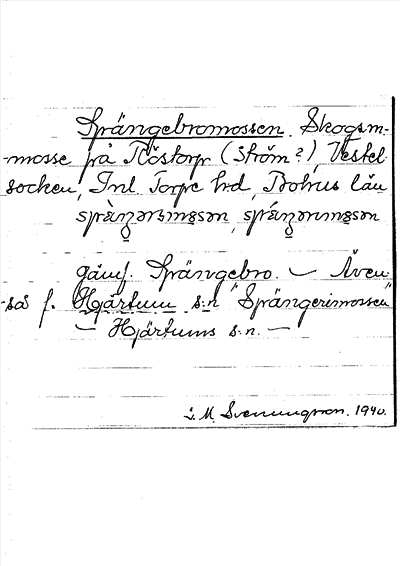 Sprängebromossen. Skogsm-
-mosse på Röstorp (Ström?), Vestel
socken, Inl. Torpe hrd, Bohus län
jämf. Sprängebro. — Även
-så f. Hjärtum s:n "Sprängerimossen"
— Hjärtums s:n. —
i. M. Svenungsson. 1940.